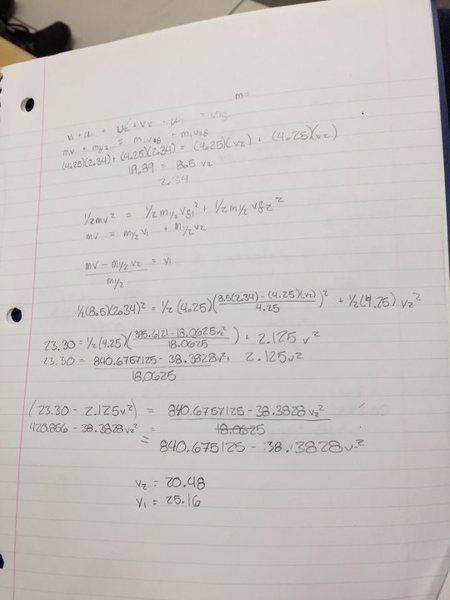 m=
v₁ + u₁ = u₂ + v₂
mv₁ + m/₂ = m₁v₀₈ + m₁v₀₈
(4.25)(2.34) + (4.25)(2.34) = (4.25)(v₂) + (4.25)(v₂)
19.89 = 8.5 v₂
2.34
½mv² = ½ m/₂ vf₁² + ½ m/₂ vf₂²
mv = m/₂ v₁ + m/₂ v₂
mv - m/₂ v₂ = v₁
m/₂
½(8.5)(2.34)² = ½ (4.25)(8.5(2.34) - (4.25)(v₂) / 4.25)² + ½(4.25) v₂²
23.30 = ½ (4.25)(395.6121 - 18.0625v₂² / 18.0625) + 2.125 v²
23.30 = 840.6757125 - 38.3828v₂² / 18.0625 + 2.125v²
(23.30 - 2.125v²) = 840.6757125 - 38.3828 v₂²
420.856 - 38.3828v₂² = 18.0625
= 840.675125 - 38.3828 v₂²
v₂ = 20.48
v₁ = 25.16